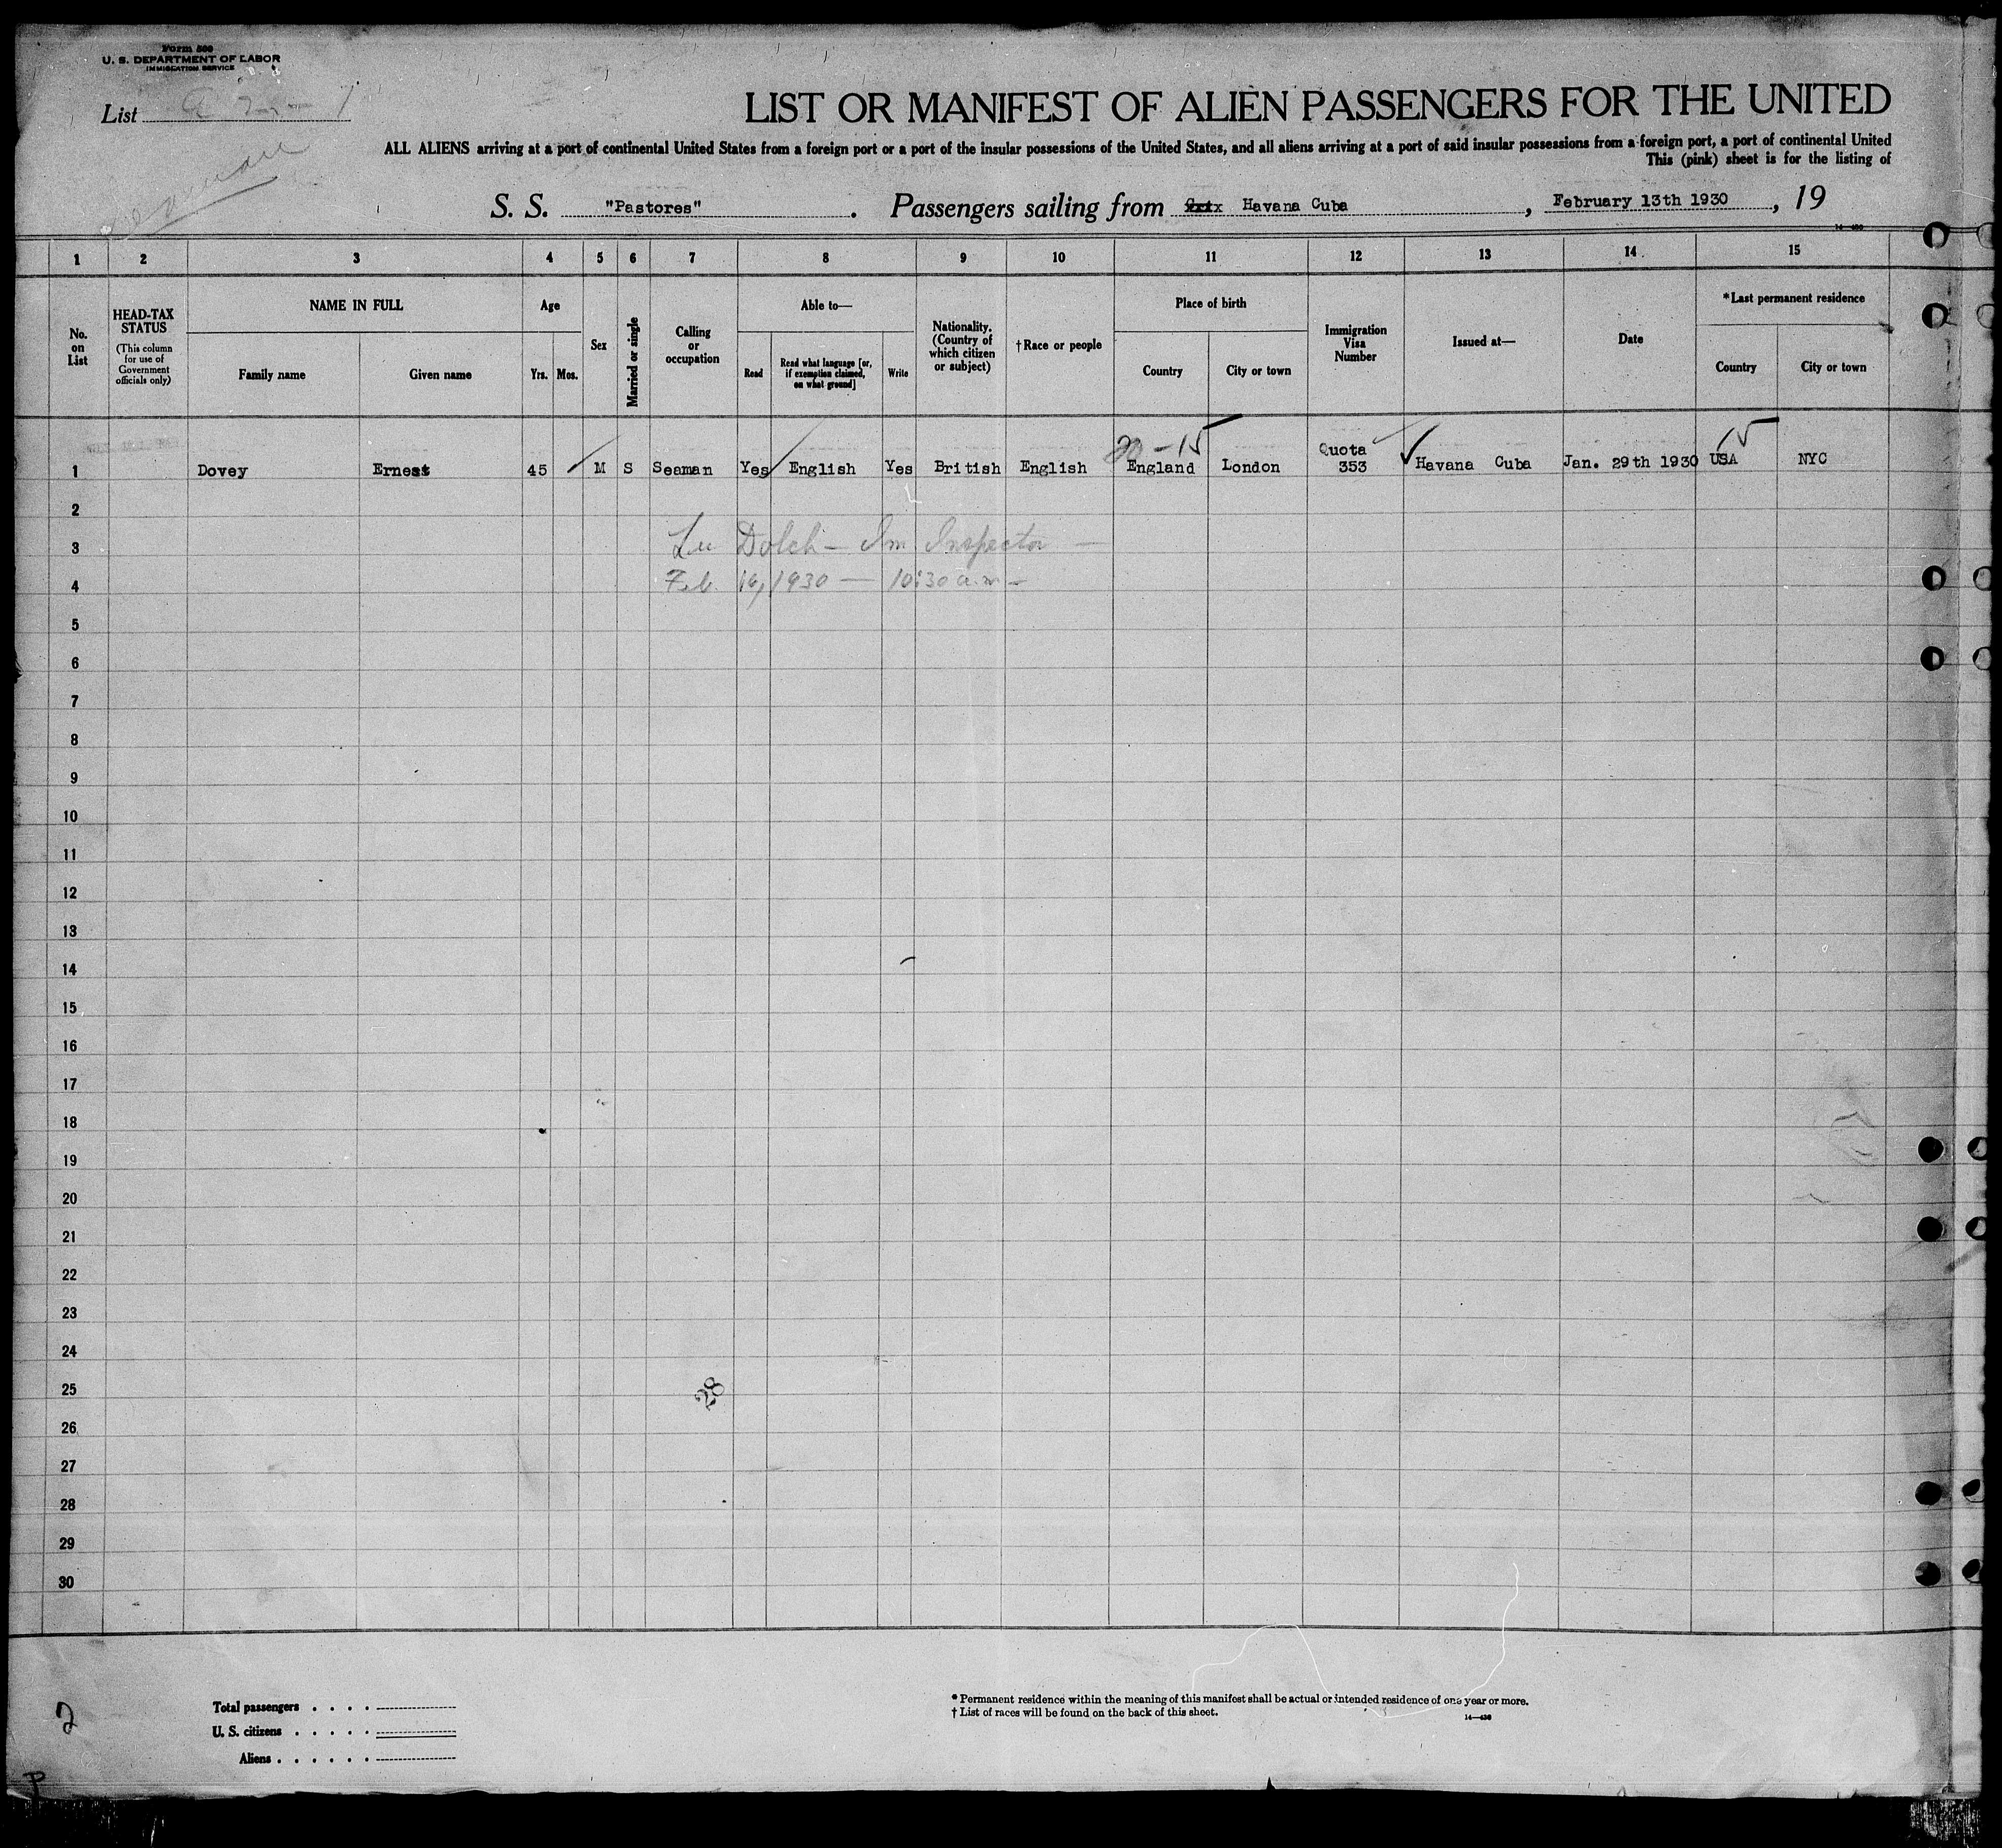 Form 500
U. S. DEPARTMENT OF LABOR
IMMIGRATION SERVICE
List
LIST OR MANIFEST OF ALIEN PASSENGERS FOR THE UNITED
ALL ALIENS arriving at a port of continental United States from a foreign port or a port of the insular possessions of the United States, and all aliens arriving at a port of said insular possessions from a foreign port, a port of continental United
This (pink) sheet is for the listing of
S. S. "Pastores". Passengers sailing from Havana Cuba, February 13th 1930, 19
14—430
1 2 3 4 5 6 7 8 9 10 11 12 13 14 15
No. on List
HEAD-TAX STATUS
(This column for use of Government officials only)
NAME IN FULL
Family name
Given name
Age
Yrs. Mos.
Sex
Married or single
Calling or occupation
Able to—
Read
Read what language [or, if exemption claimed, on what ground]
Write
Nationality. (Country of which citizen or subject)
†Race or people
Place of birth
Country
City or town
Immigration Visa Number
Issued at—
Date
*Last permanent residence
Country
City or town
20-15
15
1 Dovey Ernest 45 M S Seaman Yes English Yes British English England London Quota 353 Havana Cuba Jan. 29th 1930 USA NYC
2
3 Dolch - Im Inspector -
4 Feb. 16, 1930 — 10:30 a.m -
5
6
7
8
9
10
11
12
13
14
15
16
17
18
19
20
21
22
23
24
25 28
26
27
28
29
30
2
Total passengers . . . .
U. S. citizens . . . . .
Aliens . . . . . .
* Permanent residence within the meaning of this manifest shall be actual or intended residence of one year or more.
† List of races will be found on the back of this sheet.
14—430
P